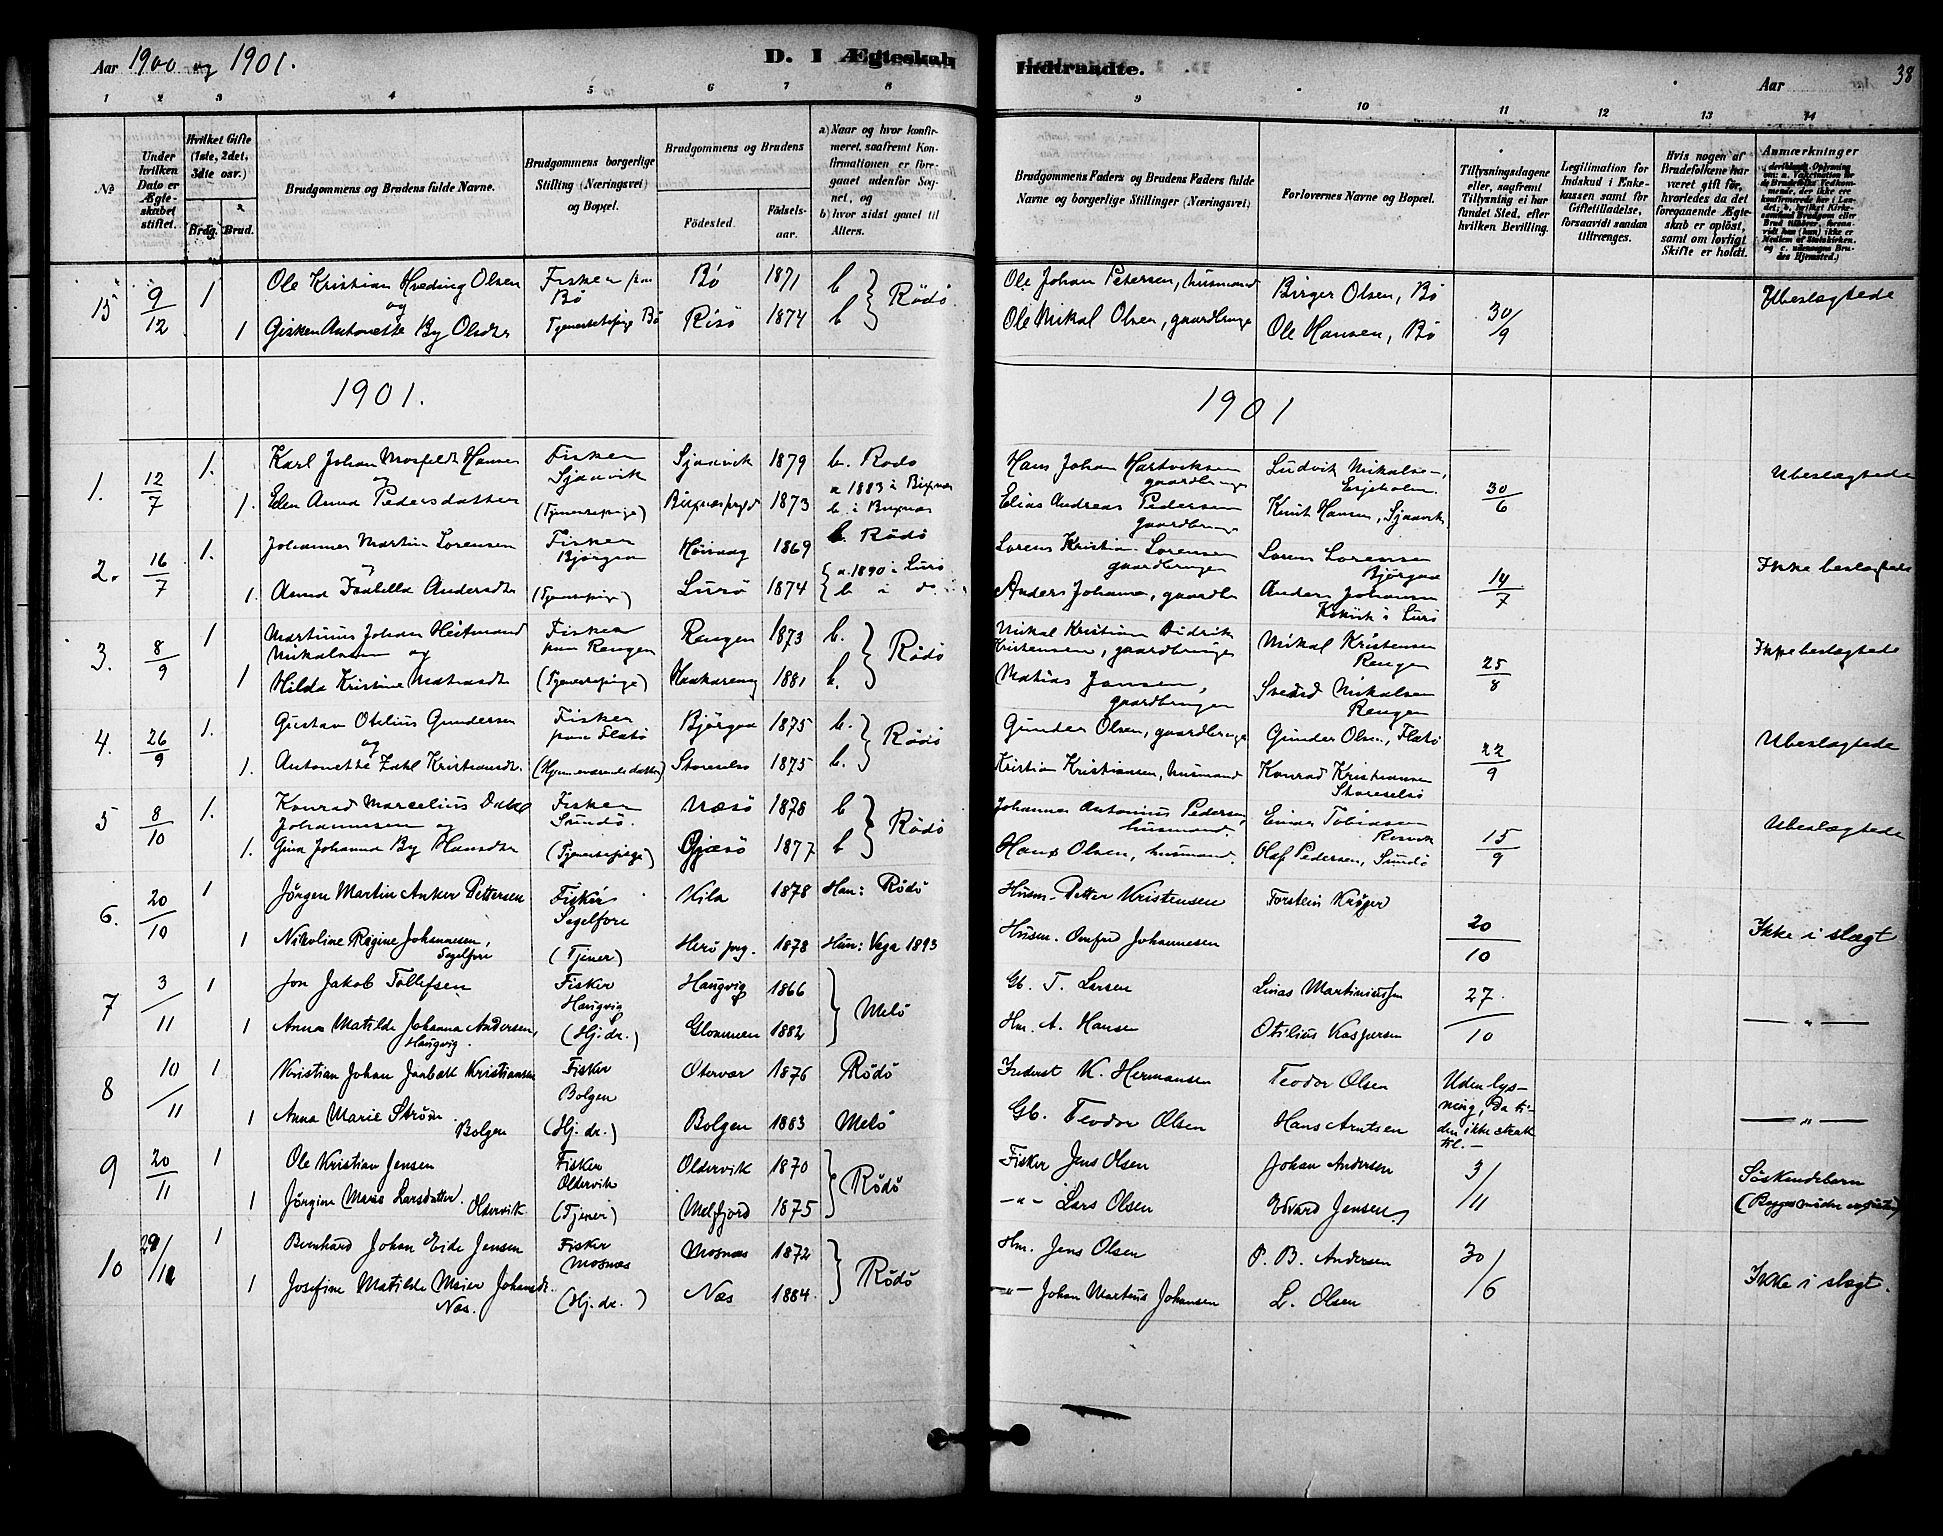 Aar 1900 og 1901.
D. I Ægteskab
Indtraadte.
Aar
38
1 2 3 4 5 6 7 8
9 10 11 12 13 14
No
Under hvilken Dato er Ægteskabet stiftet.
Hvilket Gifte (1ste, 2det, 3die osv.)
Brdg. Brud.
Brudgommens og Brudens fulde Navne.
Brudgommens borgerlige Stilling (Næringsvei) og Bopæl.
Brudgommens og Brudens
Fødested.
Fødselsaar.
a) Naar og hvor konfirmeret, saafremt Konfirmationen er foregaaet udenfor Sognet, og
b) hvor sidst gaaet til Alters.
Brudgommens Faders og Brudens Faders fulde Navne og borgerlige Stillinger (Næringsvei)
Forlovernes Navne og Bopæl.
Tillysningsdagene eller, saafremt Tillysning ei har fundet Sted, efter hvilken Bevilling.
Legitimation for Indskud i Enkekassen samt for Giftetilladelse, forsaavidt saadan tiltrænges.
Hvis nogen af Brudefolkene har været gift før, hvoriedes da det foregaaende Ægteskab er opløst, samt om lovligt Skifte er holdt.
Anmærkninger
15 9/12 1 Ole Kristian Hveding Olsen Fisker paa Bø Bø 1871 b Rødø. Ole Johan Petersen, husmand Birger Olsen, Bø 30/9 Ubeslægtede
og
1 Gisken Antonette By Olsdtr Tjenestepige Bø Risø 1874 b Ole Mikal Olsen, gaardbruger Ole Hansen, Bø
1901.
1901
1. 12/7 1. Karl Johan Mosfeldt Hansen Fisker Sjaavik Sjaavik 1879 b. Rødø Hans Johan Hartviksen gaardbruger Ludvik Mikalsen, 30/6 Ubeslægtede
og
1. Elen Anna Pedersdatter (Tjenestepige) 1873 a 1883 i Buxnæs b. i Buxnæs Elias Andreas Pedersen gaardbruger Knut Hansen, Sjaavik
2. 16/7 1. Johannes Martin Lorensen Fisker Bjørgaa 1869 b. Rødø Lorens Kristian Lorensen gaardbruger Lorens Lorensen Bjørgaa 14/7 Ikke beslægtede
og
1. Anna Isabella Andersdtr (Tjenestepige) Lurø 1874 a. 1890 i Lurø b i do Anders Johansen, gaardbr Anders Johansen i Lurø
3. 8/9 1 Martinus Johan Hestmand Mikalsen og Fisker paa Rengen Rengen 1873 b. Rødø Mikal Kristian Didrik Kristensen, gaardbruger Mikal Kristensen Rengen 25/8 Ikke beslægtede
1 Hilda Kristine Matiasdtr (Tjenestepige) 1881 b. Matias Jansen, gaardbruger Mikalsen Rengen
4. 26/9 1. Gustav Otelius Gundersen Fisker paa Flatø Bjørgaa 1875 b. Rødø Gunder Olsen, gaardbruger Gunder Olsen, Flatø 22/9 Ubeslægtede
og
1. Antonette Zahl Kristiansdtr. (Hjemmeværende datter) Storselsø 1875 b. Kristian Kristiansen, husmand Konrad Kristiansen Storselsø
5 8/10 1. Konrad Marcelius Dahl Johannesen og Fisker Sundø. Næsø 1878 b Rødø Johannes Antonius Pedersen, husmand Einar Tobiassen 15/9 Ubeslægtede
1. Gina Johanna By Hansdtr (Tjenestepige) Gjæsø 1877 b Hans Olsen, husmand. Olaf Pedersen, Sundø
6. 20/10 1 Jørgen Martin Anker Pettersen Fisker Segelfore Kila 1878 Han: Rødø Husm. Petter Kristensen Torstein Krøger 20/10 Ikke i slægt
1 Nikoline Regine Johannesen, Segelfore (Tjener) Herø prg. 1878 Hun: Vega 1893 Husm. Johannesen
7 3/11 1 Jon Jakob Tollefsen Fisker Haugvig Haugvig 1866 Melø Gb. T. Larsen Linas Martiniussen 27/10 — „ —
1 Anna Matilde Johanna Andersen, Haugvig. (Hj. dr.) Glommen 1882 Hm. A. Hansen Otelius Kaspersen
8 10/11 1 Kristian Johan Kristiansen Fisker Bolgen Otervær 1876 Rødø Inderst K. Hermansen Teodor Olsen Uden lysning, da tiden ikke strak til. — — „ —
1 Anna Marie Strøm Bolgen (Hj. dr.) Bolgen 1883 Melø Gb. Teodor Olsen Hans Arntsen
9 20/11 1 Ole Kristian Jensen Fisker Oldervik Oldervik 1870 Rødø Fisker Jens Olsen Johan Andersen 3/11 Søskendebørn
1 Jørgine Marie Larsdatter Oldervik (Tjener) Melfjord 1875 — „ — Lars Olsen Edvard Jensen
10 29/12 1 Bernhard Johan Eide Jensen Fisker Mosnæs Mosnæs 1872 Rødø Hm. Jens Olsen P. B. Andersen 30/6 Ikke i slægt.
1 Josefine Matilde Meier Johansdt. Næs. (Hj. dr.) Næs 1884. — „ — Johan Martius Johansen L. Olsen